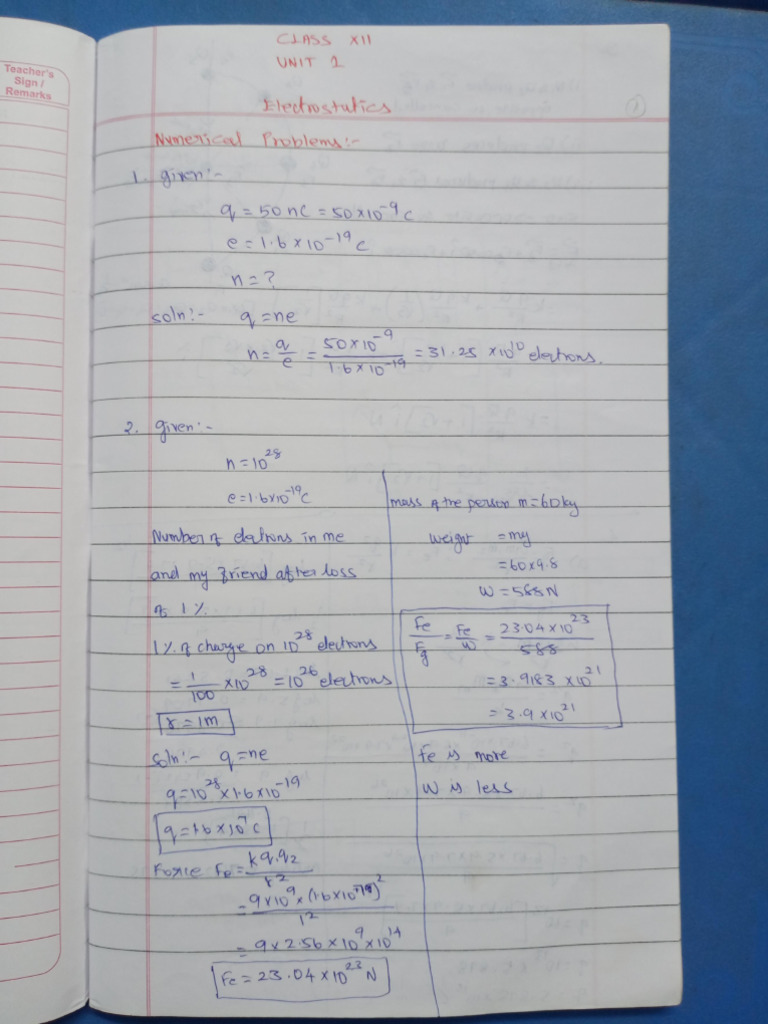 Teacher's
Sign /
Remarks
CLASS XII
UNIT 1
Electrostatics
Numerical Problems:-
1. given:-
q = 50 nC = 50×10⁻⁹ C
e = 1.6 × 10⁻¹⁹ C
n = ?
soln:- q = ne
n = q/e = 50×10⁻⁹/1.6×10⁻¹⁹ = 31.25 ×10¹⁰ electrons.
2. given:-
n = 10²⁸
e = 1.6×10⁻¹⁹ C
Number of electrons in me
and my friend after loss
of 1%
1% of charge on 10²⁸ electrons
= 1/100 × 10²⁸ = 10²⁶ electrons
r = 1m
soln:- q = ne
q = 10²⁸ × 1.6 × 10⁻¹⁹
q = 1.6 × 10⁷ C
Force Fe = kq₁q₂/r²
= 9×10⁹ × (1.6×10⁻¹⁹)²/1²
= 9 × 2.56 × 10⁹ × 10¹⁴
Fe = 23.04 × 10²³ N
mass of the person m = 60 kg
weight = mg
= 60×9.8
W = 588 N
Fe/Fg = Fe/W = 23.04 × 10²³/588
= 3.9183 × 10²¹
= 3.9 × 10²¹
Fe is more
W is less